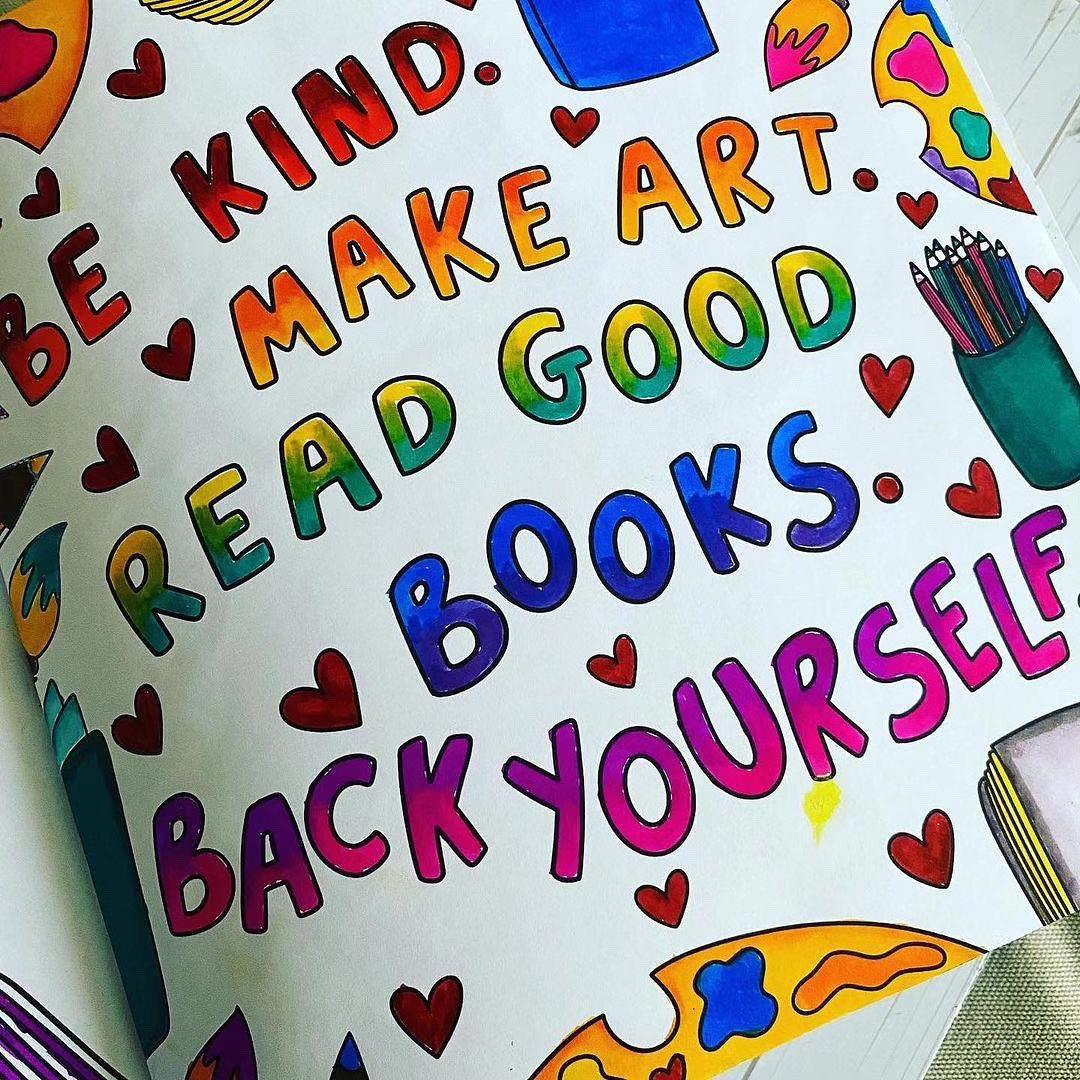 BE KIND.
MAKE ART.
READ GOOD
BOOKS.
BACK YOURSELF